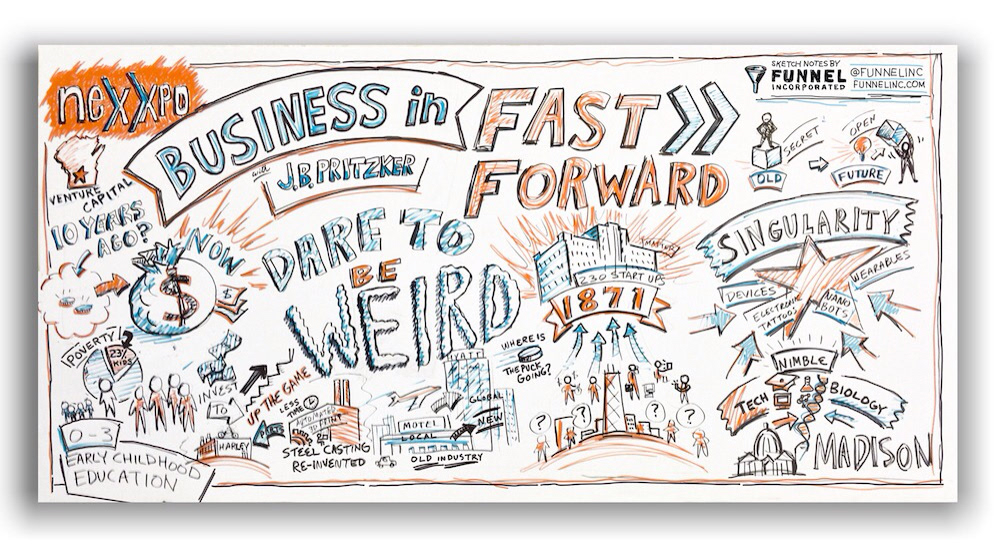 neXXpo
BUSINESS in
FAST
FORWARD
with
J.B. PRITZKER
SKETCH NOTES BY
FUNNEL
INCORPORATED
@FUNNELINC
FUNNELINC.COM
VENTURE
CAPITAL
10 YEARS
AGO?
NOW
$
$
DARE TO
BE
WEIRD
230 START UPS
1871
SECRET
OLD
OPEN
FUTURE
SINGULARITY
DEVICES
WEARABLES
ELECTRONIC
TATTOOS
NANO
BOTS
NIMBLE
TECH
BIOLOGY
MADISON
POVERTY
23%
KIDS
0-3
EARLY CHILDHOOD
EDUCATION
INVEST
TO
UP THE GAME
HARLEY
LESS
TIME
PARTS
STEEL CASTING
RE-INVENTED
HYATT
MOTEL
LOCAL
OLD INDUSTRY
GLOBAL
NEW
WHERE IS
THE PUCK
GOING?
?
?
?
?